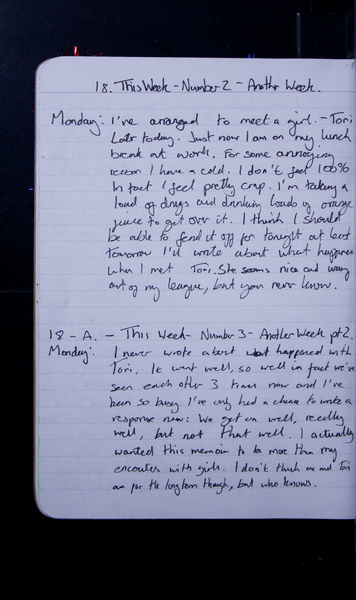 18. This Week - Number 2 - Another Week.
Monday: I've arranged to meet a girl. - Tori
Later today. Just now I am on my lunch
break at work. For some annoying
reason I have a cold. I don't feel 100%
In fact I feel pretty crap. I'm taking a
load of drugs and drinking loads of orange
juice to get over it. I think I should
be able to fend it off for tonight at least
tomorrow I'll write about what happens
when I met Tori. She seems nice and way
out of my league, but you never know.
18 - A. - This Week - Number 3 - Another Week pt 2.
Monday: I never wrote about what happened with
Tori. It went well, so well in fact we've
seen each other 3 times now and I've
been so busy I've only had a chance to write a
response now: We get on well, really
well, but not that well. I actually
wanted this memoir to be more than my
encounters with girls. I don't think me and Tori
are for the long term though, but who knows.